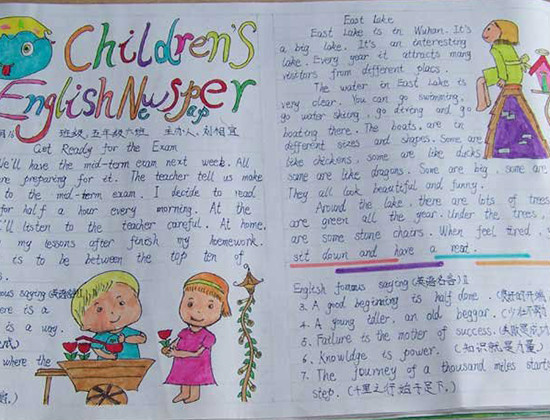 Children's
English Newspaper
班级:五年级六班 主办人:刘相宜
Get Ready for the Exam
We'll have the mid-term exam next week. All
are preparing for it. The teacher tell us make
to the mid-term exam. I decide to read
for half a hour every morning. At the
I'll listen to the teacher careful. At home,
my lessons after finish my homework.
is to be between the top ten of
saying(英语名言)I
ere is a
is a way.
where the
East Lake
East Lake is in Wuhan. It's
a big lake. It's an interesting
lake. Every year it attracts many
visitors from different placs.
The water in East Lake is
very clear. You can go swimming,
go water skiing, go diving and go
boating there. The boats are in
different sizes and shapes. Some are
like chickens, some are like ducks
some are like dragons. Some are big, some are
They all look beautiful and funny.
Around the lake, there are lots of trees
are green all the year. Under the trees,
are some stone chairs. When feel tired, y
sit down and have a rest.
English famous saying (英语名言)II
3. A good beginning is half done. (良好的开端
4. A young idler, an old beggar. (少壮不努
5. Failure is the mother of success. (失败是成功
6. Knowldge is power. (知识就是力量)
7. The journey of a thousand miles starts
step. (千里之行始于足下。)